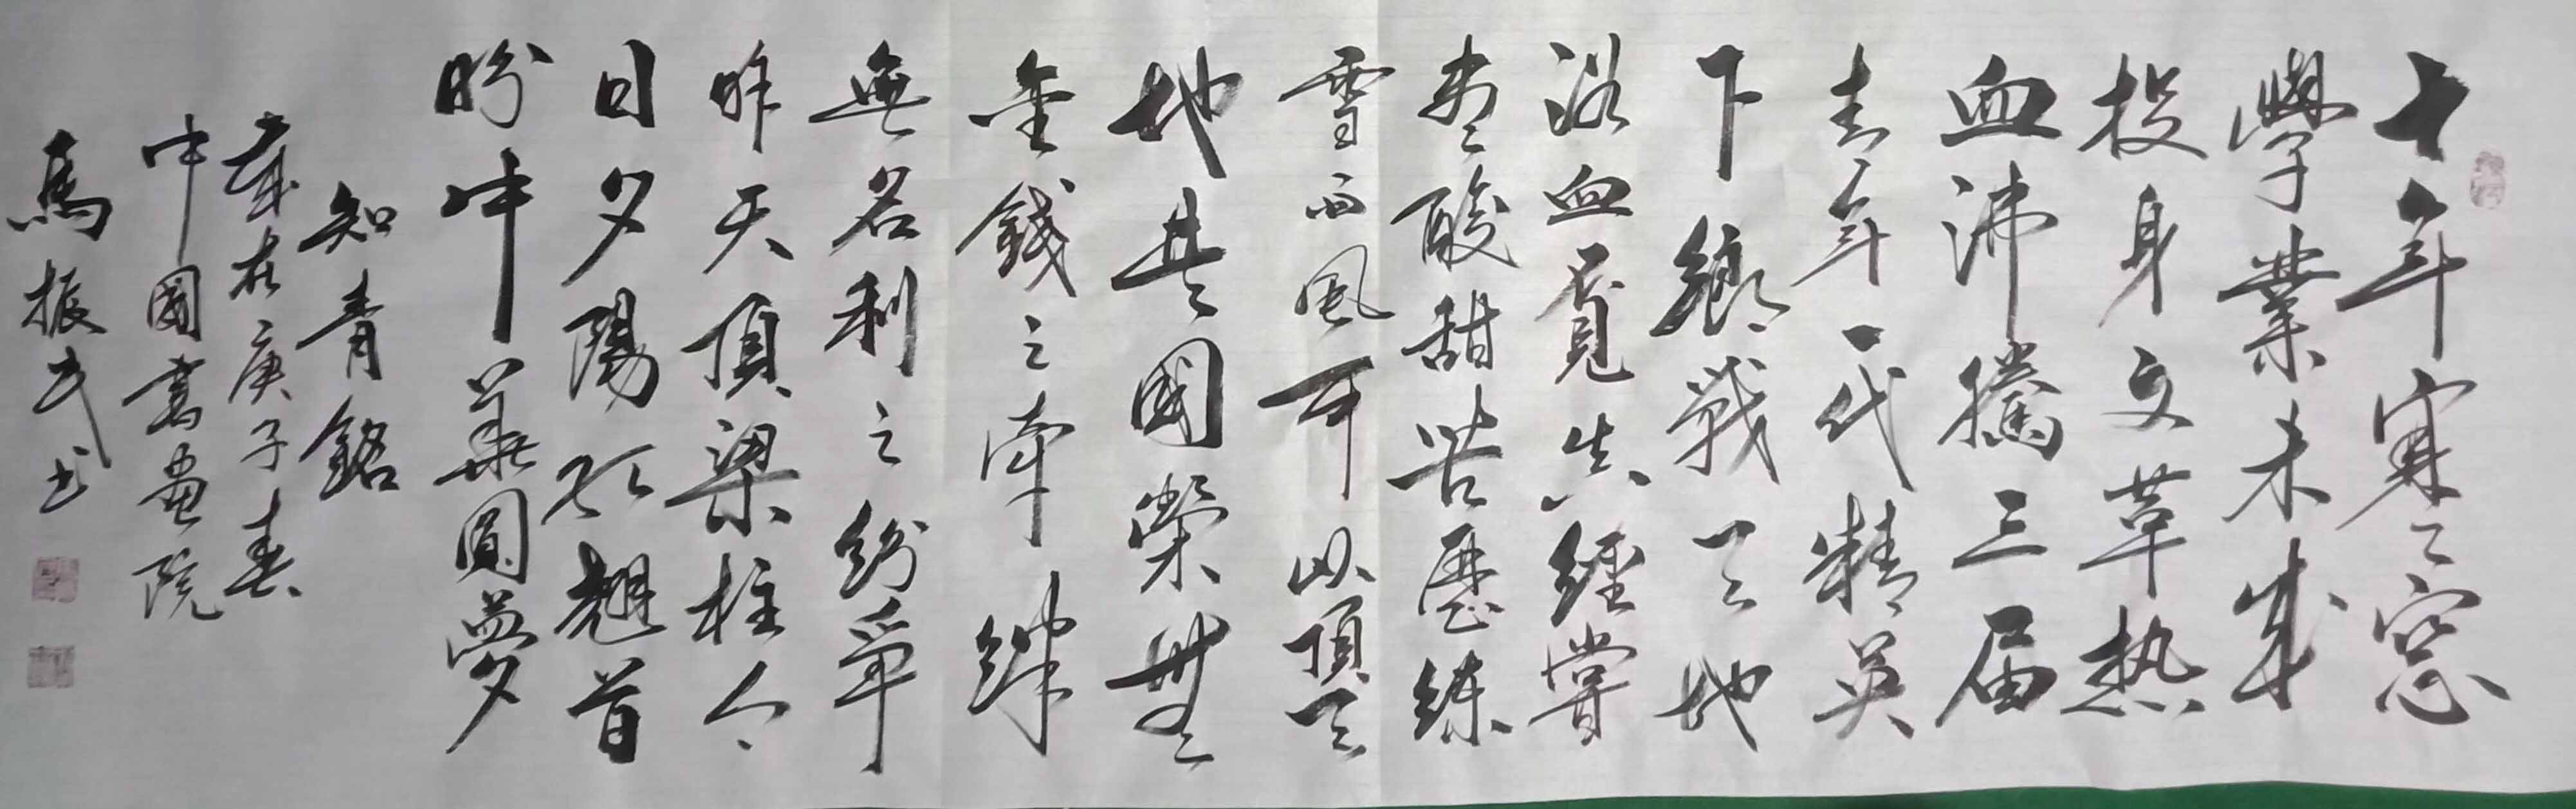 十年寒窓
學業未成
投身文革熱
血沸騰三届
青年一代精英
下鄉戰天地
浴血覓真經嘗
盡酸甜苦歷練
雪雨風可以頂天
地共國榮無
金錢之牽絆
無名利之紛爭
昨天頂梁柱今
日夕陽紅翹首
盼中華圓夢
知青銘
歲在庚子春
中國書畫院
馬振民書